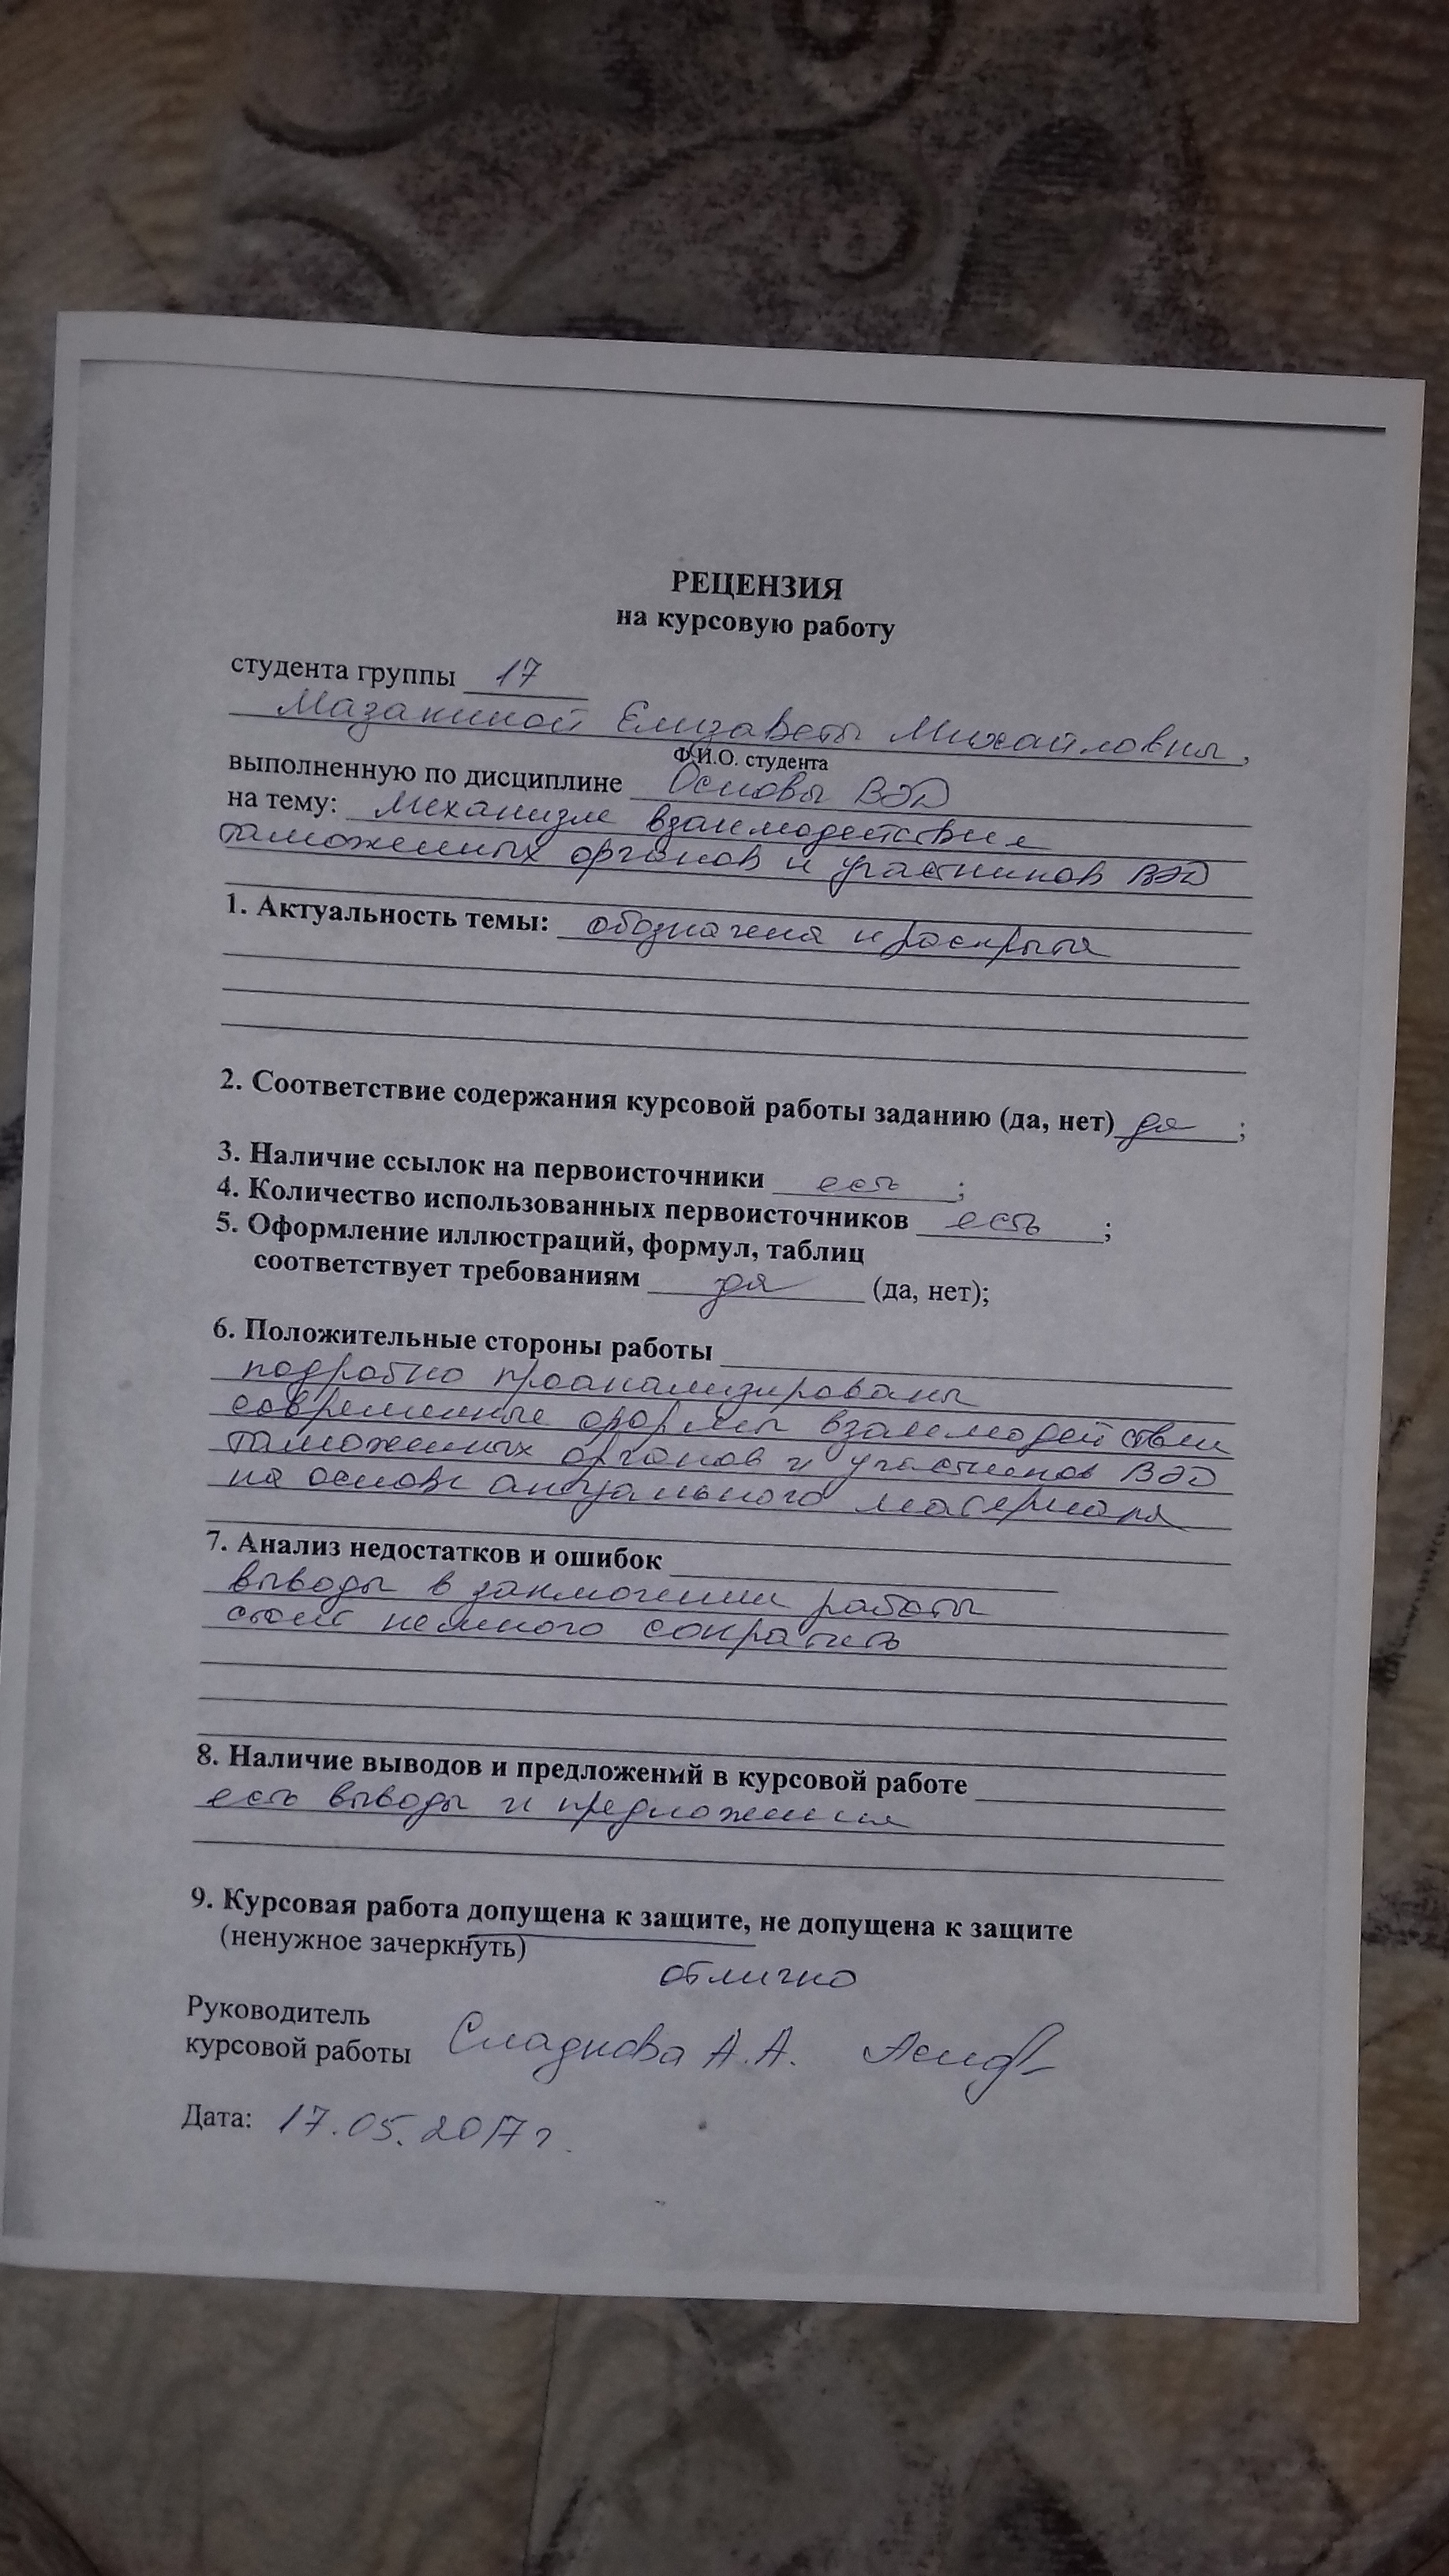 РЕЦЕНЗИЯ
на курсовую работу
студента группы 17
Мазакиной Елизаветы Михайловны,
Ф.И.О. студента
выполненную по дисциплине Основы ВЭД
на тему: Механизм взаимодействия
таможенных органов и участников ВЭД
1. Актуальность темы: обозначена и раскрыта
2. Соответствие содержания курсовой работы заданию (да, нет) да ;
3. Наличие ссылок на первоисточники есть ;
4. Количество использованных первоисточников есть ;
5. Оформление иллюстраций, формул, таблиц
соответствует требованиям да (да, нет);
6. Положительные стороны работы
подробно проанализированы
современные формы взаимодействия
таможенных органов и участников ВЭД
на основе актуального материала
7. Анализ недостатков и ошибок
выводы в заключении работы
стоит немного сократить
8. Наличие выводов и предложений в курсовой работе
есть выводы и предложения
9. Курсовая работа допущена к защите, не допущена к защите
(ненужное зачеркнуть)
отлично
Руководитель
курсовой работы Сладкова А.А.
Дата: 17.05.2017 г.